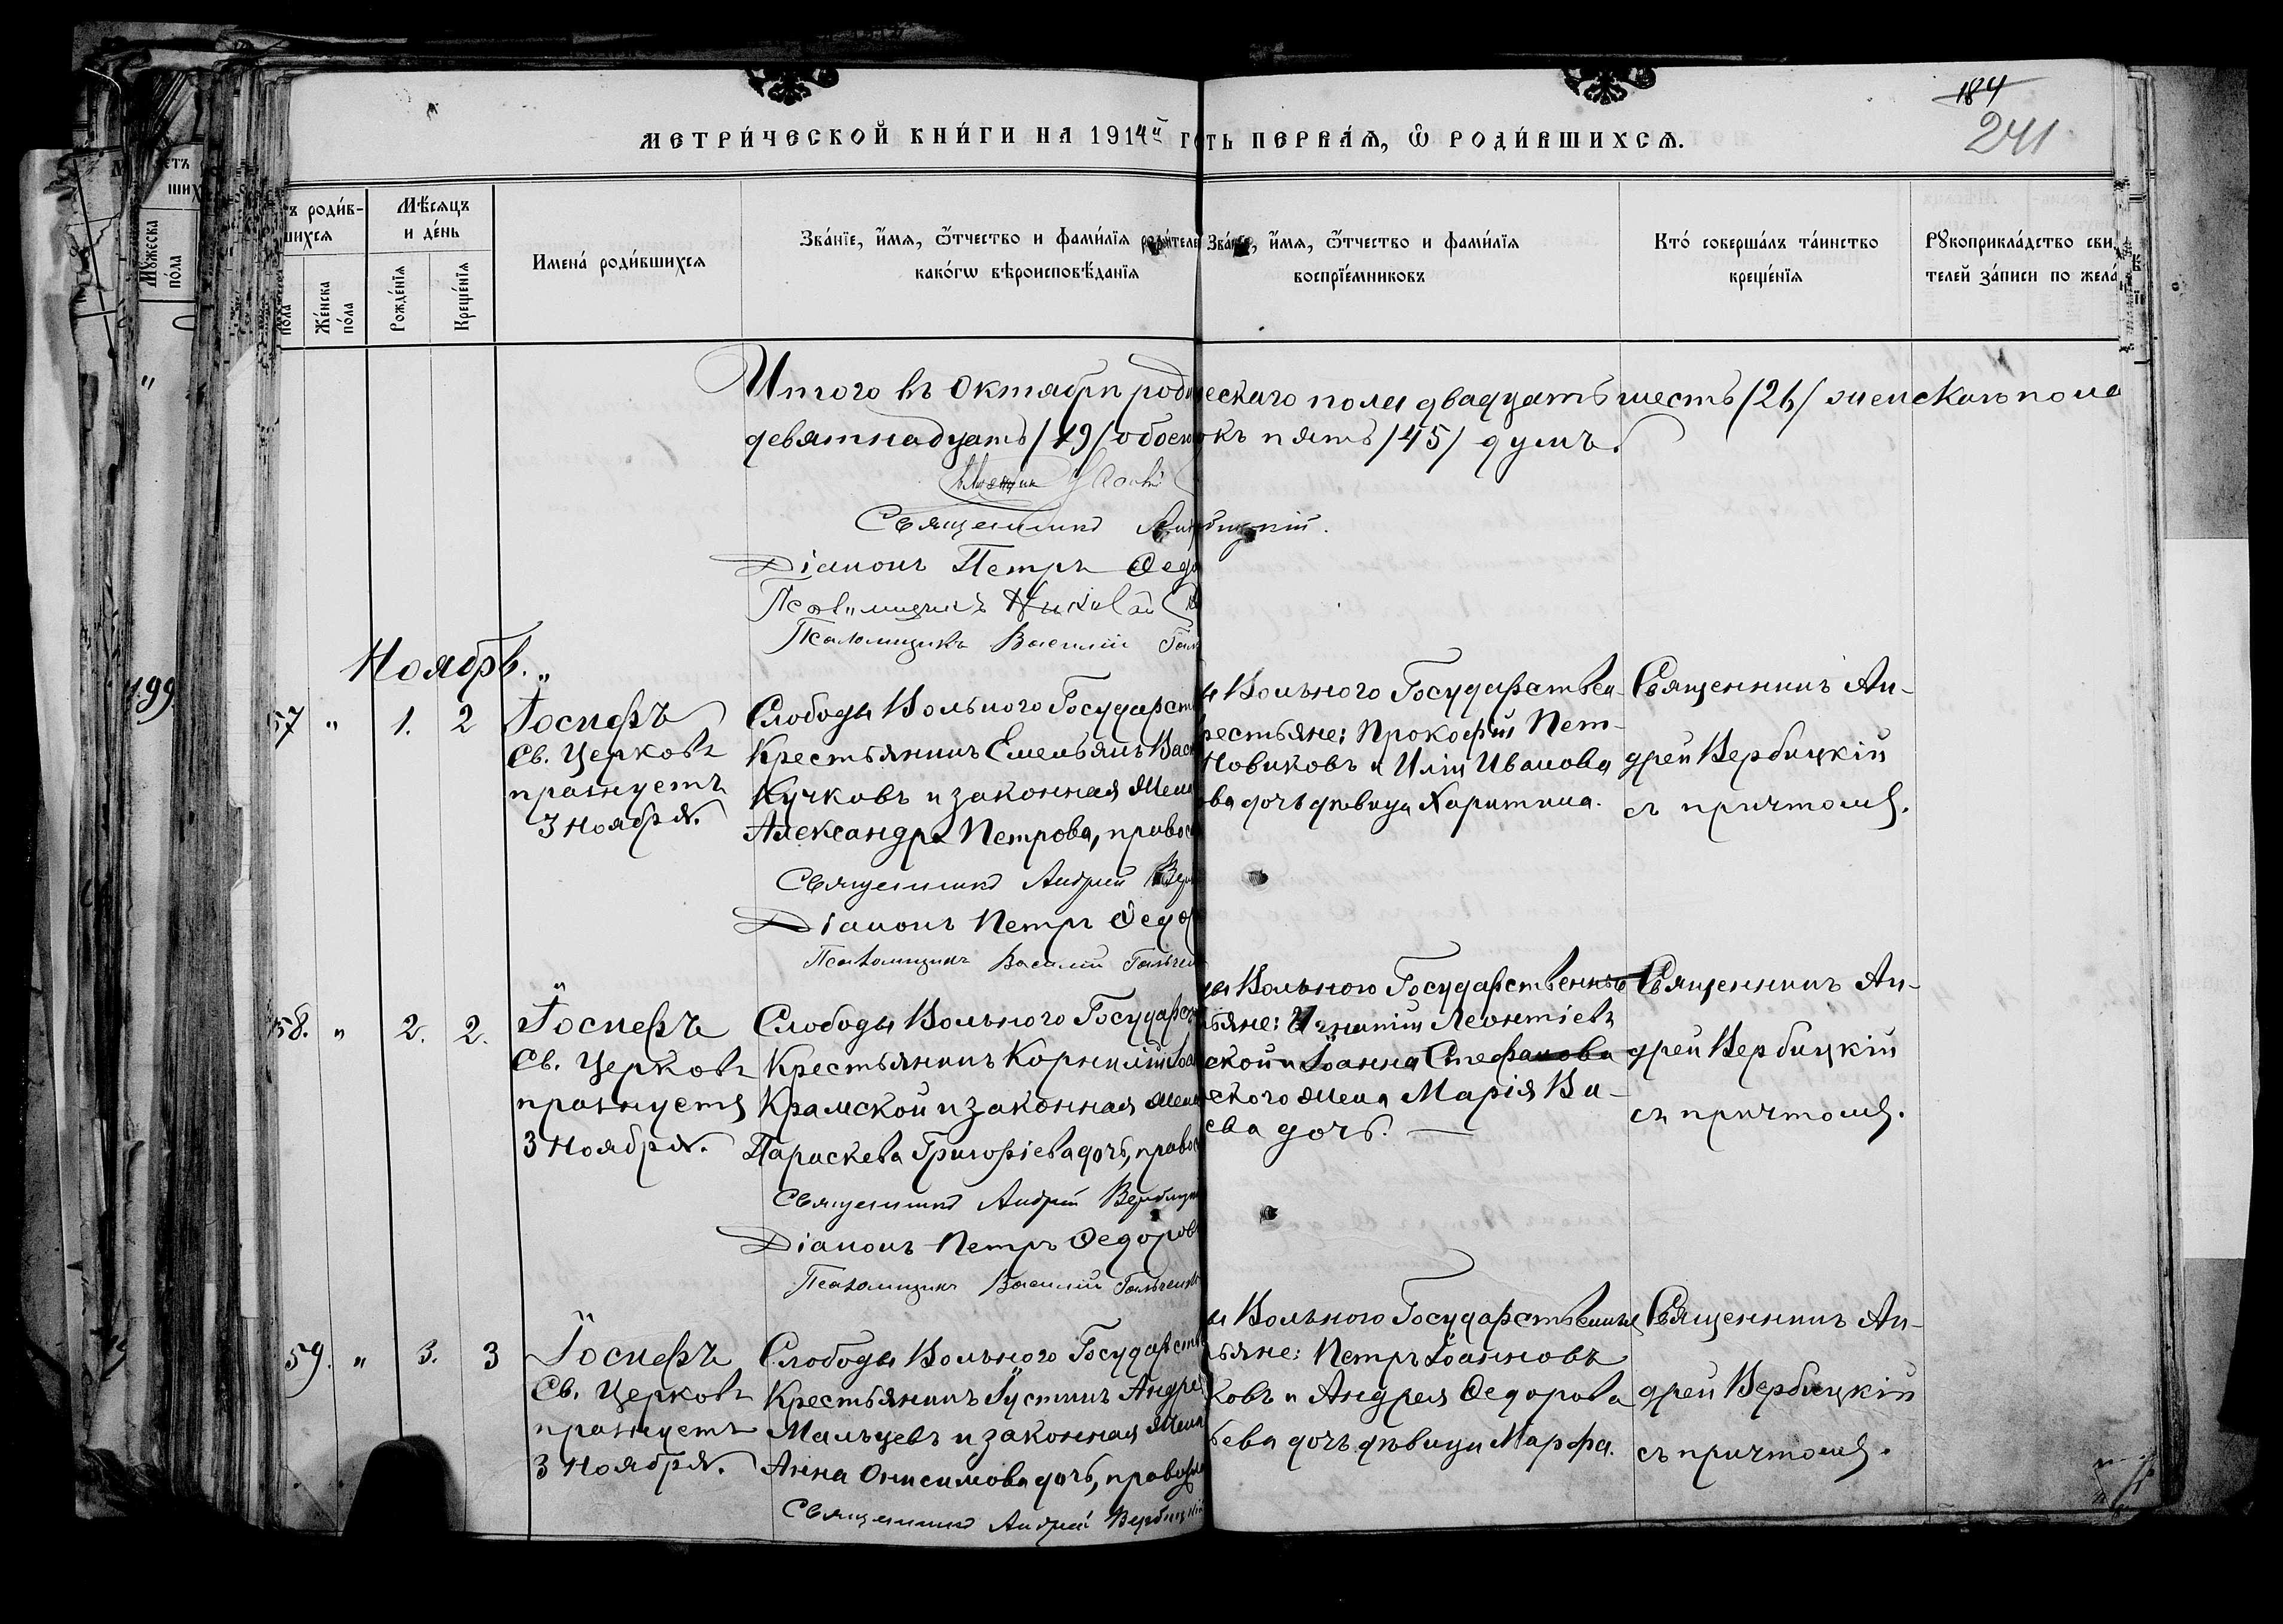 184
241
МЕТРИ́ЧЕСКОЙ КНИ́ГИ НА 1914й ГО
СТЬ ПЕРВА́Я, Ѡ҆ РОДИ́ВШИХСЯ.
ъ роди́в-
шихся
Мѣ́сяцъ
и де́нь
Имена́ роди́вшихся
Зва́нїе, и҆́мя, ѻ҆́тчество и фами́лїя роди́теле
како́гѡ вѣроисповѣ́данїя
Зва́нїе, и҆́мя, ѻ҆́тчество и фами́лїя
воспрїе́мниковъ
Кто́ соверша́лъ та́инство
креще́нїя
Рꙋкоприкла́дство сви
телей за́писи по жела
Мꙋ́жеска
по́ла
пола
Же́нска
по́ла
Рожде́нїя
Креще́нїя
Итого въ Октябрѣ роди
ескаго пола двадцать шесть /26/ женскаго пола
девятнадцать /19/ обоего
окъ пять /45/ душъ.
Священникъ
бицкій.
Діаконъ Петръ Ѳедо
Псаломщикъ Николай
Псаломщикъ Василій Галь
Ноябрь.
199
57 " 1. 2 Іосифъ
Св. Церковь
празнуетъ
3 Ноября.
Слободы Вольного Государств
Крестьянинъ Емельянъ Вас
Кучковъ и законная жена
Александра Петрова, правос
ы Вольного Государствен-
рестьяне: Прокофій Пет-
Новиковъ и Иліи Иванова
ва дочь дѣвица Харитина.
Священникъ Ан-
дрей Вербицкій
съ причтомъ.
Священникъ Андрей Вер
Діаконъ Петръ Ѳедор
Псаломщикъ Василій Гальчен
58. " 2. 2. Іосифъ
Св. Церковь
празнуетъ
3 Ноября.
Слободы Вольного Государст
Крестьянинъ Корнилій Іоан
Крамской и законная жена
Параскева Григоріева дочь, правос
ы Вольного Государственные
ьяне: Игнатій Леонтіевъ
ской и Іоанна Стефанова
ского жена Марія Ва-
ева дочь.
Священникъ Ан-
дрей Вербицкій
съ причтомъ.
Священникъ Андрей Вербицк
Діаконъ Петръ Ѳедоров
Псаломщикъ Василій Гальченк
59. " 3. 3 Іосифъ
Св. Церковь
празнуетъ
3 Ноября.
Слободы Вольного Государств
Крестьянинъ Іустинъ Андре
Мальцевъ и законная жена
Анна Онисимова дочь, правосл
ы Вольного Государственные
ьяне: Петръ Іоанновъ
ковъ и Андрея Ѳедорова
ьева дочь дѣвица Марфа.
Священникъ Ан-
дрей Вербицкій
съ причтомъ.
Священникъ Андрей Вербицкій